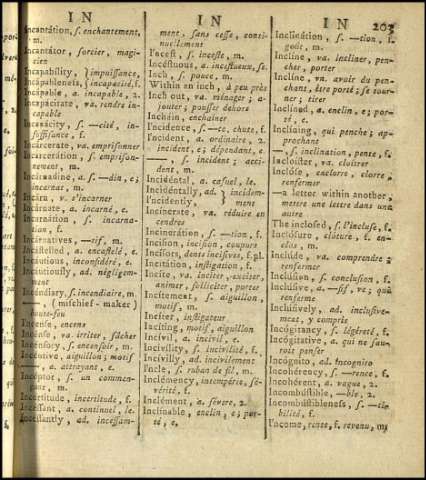 IN
IN
IN
203
Incantátion, ſ. enchantement,
m.
Incantátor, ſorcier, magi-
cien
Incapability, } impuiſſance,
Incápableneſs, } incapacité, f.
Incápable, a. incapable, 2.
Incapácitate, va. rendre in-
capable
Incapácity, ſ. —cité, in-
ſuffiſance, f.
Incárcerate, va. empriſonner
Incarcerátion, ſ. empriſon-
nement, m.
Incárnadine, a. ſ. —din, e;
incarner, m.
Incárn, v. s'incarner
Incárnate, a. incarné, e.
Incarnátion, ſ. incarna-
tion, f.
Incárnatives, —tif, m.
Incáſtelled, a. encaſtelé, e.
Incáutious, inconſidéré, e.
Incáutiouſly, ad. négligem-
ment
Incéndiary, ſ. incendiaire, m.
—, (miſchief-maker)
boute-feu
Incénſe, encens
Incénſe, va. irriter, fâcher
Incénſory, ſ. encenſoir, m.
Incéntive, aiguillon; motif
—, a. attrayant, e.
Incéptor, ſ. un commen-
çant, m.
Incértitude, incertitude, f.
Inceſſant, a. continuel, le.
Inceſſantly, ad. inceſſam-
ment, ſans ceſſe, conti-
nuellement
Inceſt, ſ. inceſte, m.
Inceſtuous, a. inceſtueux, ſe.
Inch, ſ. pouce, m.
Within an inch, à peu près
Inch out, va. ménager; a-
jouter; pouſſer dehors
Incháin, enchaîner
Incidence, ſ. —ce, chute, f.
Incident, a. ordinaire, 2.
incident, e; dépendant, e.
—, ſ. incident; acci-
dent, m.
Incidéntal, a. caſuel, le.
Incidéntally, ad. } incidem-
Incidently, } ment
Incinerate, va. réduire en
cendres
Incinerátion, ſ. —tion, f.
Inciſion, inciſion, coupure
Inciſors, dents inciſives, f. pl.
Incitátion, inſtigation, f.
Incite, va. inciter, exciter,
animer, ſolliciter, porter
Incitement, ſ. aiguillon,
motif, m.
Inciter, inſtigateur
Inciting, motif, aiguillon
Incivil, a. incivil, e.
Incivility, ſ. incivilité, f.
Incivilly, ad. incivilement
Incle, ſ. ruban de fil, m.
Inclémency, intempérie, ſé-
vérité, f.
Inclément, a. ſévere, 2.
Inclínable, enclin, e; por-
té, e.
Inclinátion, ſ. —tion, f.
goût, m.
Incline, va. incliner, pen-
cher, porter
Incline, vn. avoir du pen-
chant, être porté; ſe tour-
ner; tirer
Inclined, a. enclin, e; por-
té, e.
Inclining, qui penche; ap-
prochant
—, ſ. inclination, pente, f.
Incloíſter, va. cloîtrer
Inclóſe, enclorre, clorre,
renfermer
—a letter within another,
mettre une lettre dans une
autre
The incloſed, ſ. l'incluſe, f.
Inclóſure, clôture, f. en-
clos, m.
Inclúde, va. comprendre,
renfermer
Inclúſion, ſ. concluſion, f.
Incluſive, a. —ſif, ve; qui
renferme
Incluſively, ad. incluſive-
ment, y compris
Incógitancy, ſ. légéreté, f.
Incógitative, a. qui ne ſau-
roit penſer
Incógnito, ad. incognito
Incohérency, ſ. —rence, f.
Incohérent, a. vague, 2.
Incombúſtible, —ble, 2.
Incombúſtibleneſs, ſ. —ti-
bilité, f.
Income, rente, f. revenu, m.